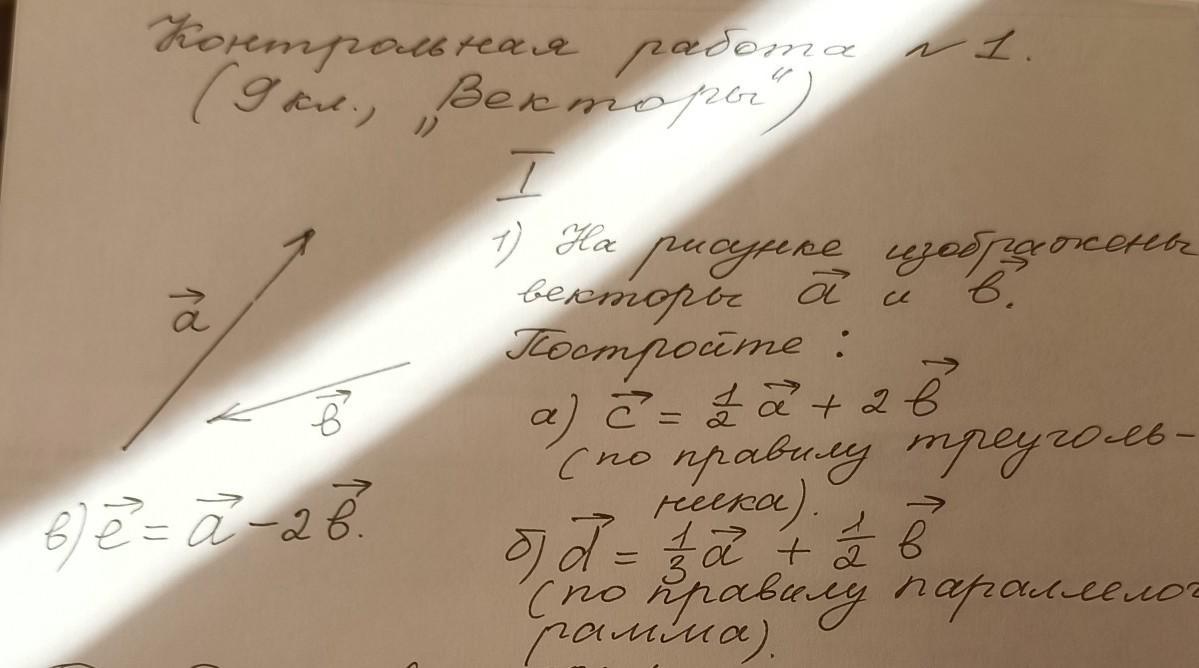 Контрольная работа №1.
(9 кл., „Векторы“)
I
1) На рисунке изображены
векторы a⃗ и в⃗.
Постройте:
а) c⃗ = 1/2 a⃗ + 2 в⃗
(по правилу треуголь-
ника).
б) d⃗ = 1/3 a⃗ + 1/2 в⃗
(по правилу параллелог
рамма).
a⃗
в⃗
в) e⃗ = a⃗ - 2 в⃗.